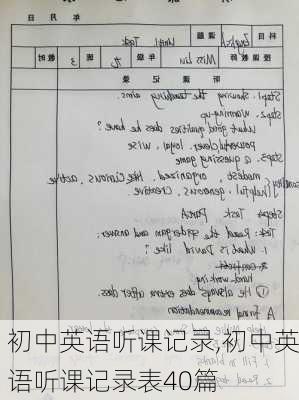 科目 English 课题 Unit1 Task
授课教师 Miss Liu 年级 九 班 3 教时
听课记录
Step1. Showing the teaching aims
Step2. Warming-up
What good qualities does he have?
Powerful, clever, loyal, wise
Step3. a guessing game
modest, organized, curious, active
helpful, generous, creative
Step4 Task PartA
Task: Read the spidergram and answer
1. What is David like?
hard-working
He always does extra after
A friend recommendation
初中英语听课记录,初中英
语听课记录表40篇